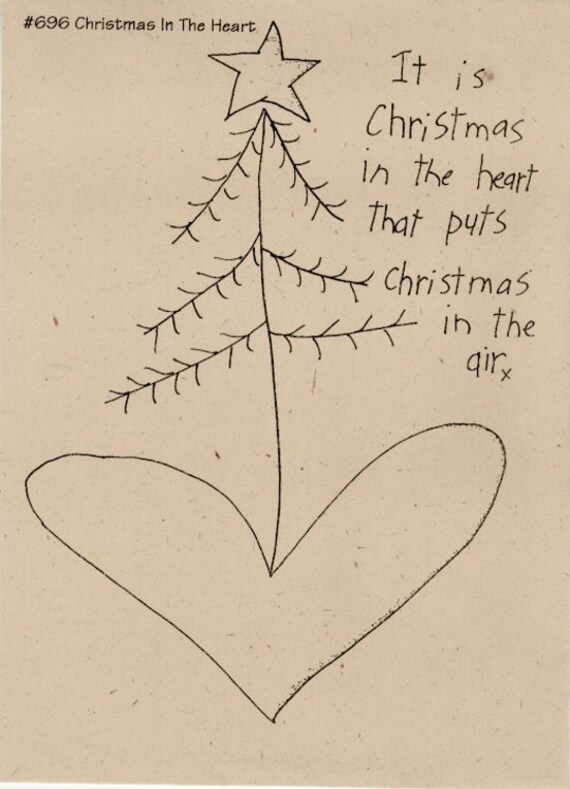 #696 Christmas In The Heart
It is
Christmas
in the heart
that puts
Christmas
in the
air x